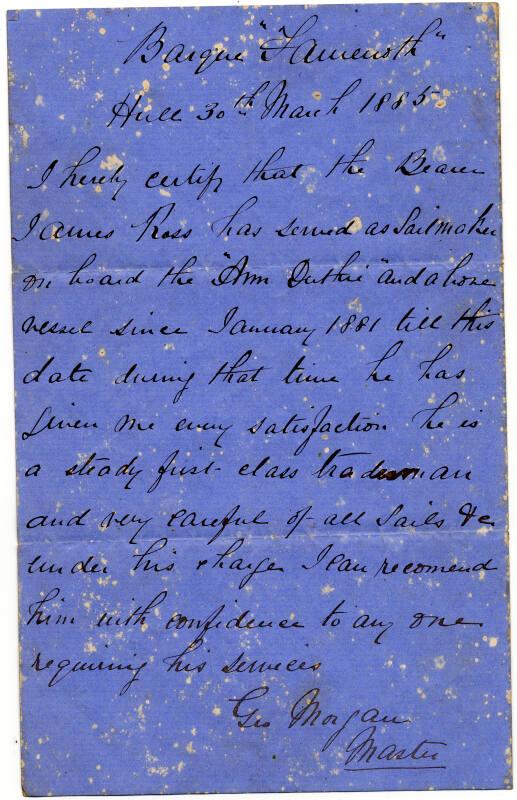 Barque
Hull 30th March 1885
I hereby certify that the Bearer
James Ross has served as Sailmaker
on board the "Ann Duthie" and above
vessel since January 1881 till this
date during that time he has
given me every satisfaction he is
a steady first-class tradesman
and very careful of all Sails &c
under his charge I can recomend
him with confidence to any one
requiring his services
Geo Morgan
Master